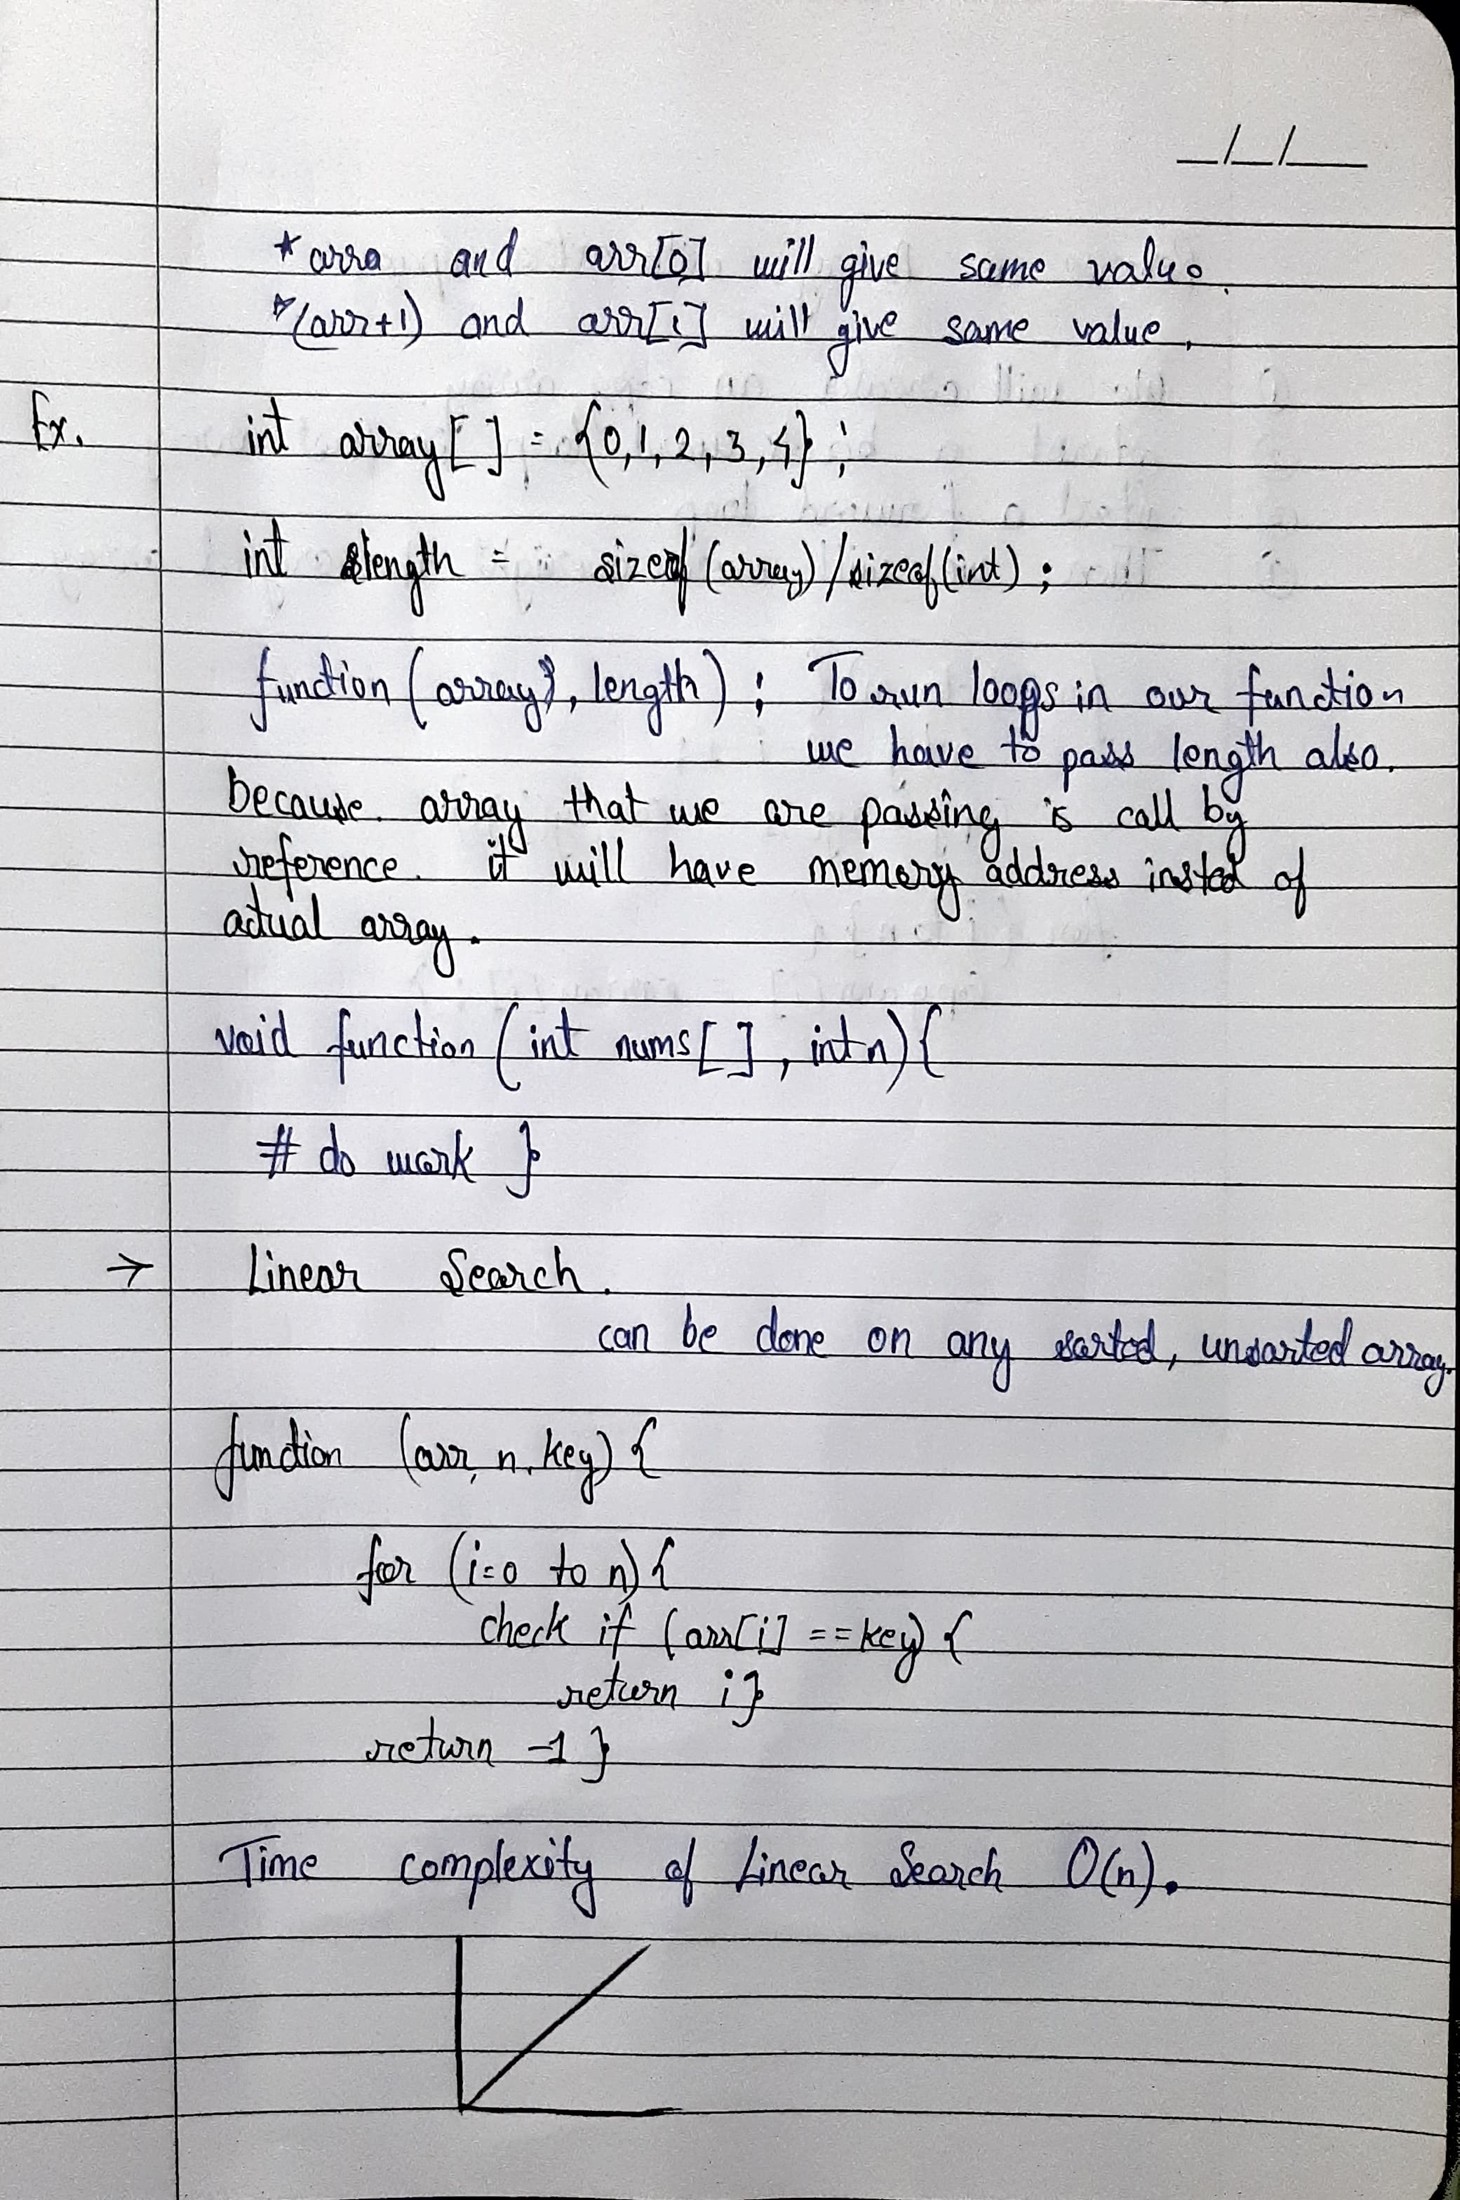 _/_/__
*arra and arr[0] will give same value.
*(arr+1) and arr[i] will give same value,
Ex. int array[] = {0,1,2,3,4};
int length = sizeof(array)/sizeof(int);
function(array, length); To run loops in our function
we have to pass length also.
because. array that we are passing is call by
reference. it will have memory address insted of
actual array.
void function(int nums[], int n){
# do work }
→ Linear Search.
can be done on any sorted, unsorted array.
function (arr, n, key){
for (i=0 to n){
check if (arr[i] == key){
return i}
return -1}
Time complexity of Linear Search O(n).